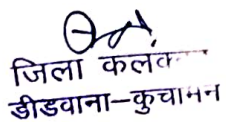 जिला कलेक
डीडवाना-कुचामन